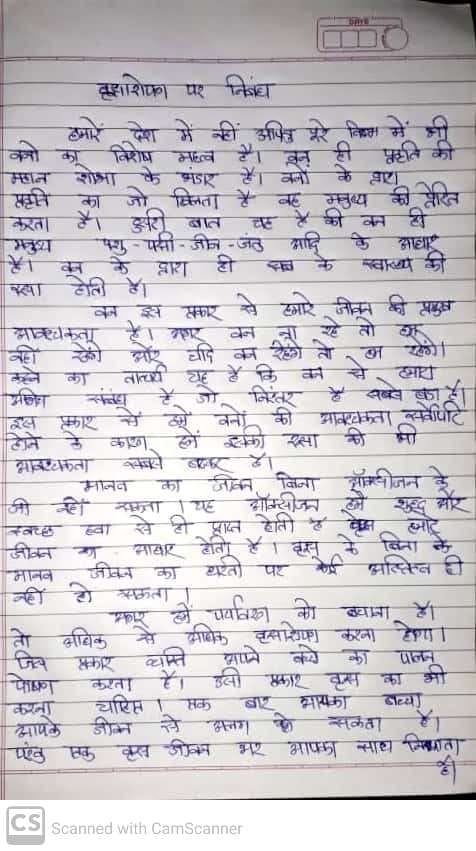 DATE
वृक्षारोपण पर निबंध
हमारे देश में नहीं अपितु पूरे विश्व में भी
वनो का विशेष महत्व है। वन ही प्रकृति की
महान शोभा के भंडार है। वनों के द्वारा
प्रकृति का जो है वह मनुष्य को प्रेरित
करता है। दूसरी बात यह है की वन ही
मनुष्य पशु - पक्षी - जीव - जंतु आदि के आधार
है। वन के द्वारा ही सब के स्वास्थ्य की
रक्षा होती है।
वन इस प्रकार से हमारे जीवन की प्रमुख
आवश्यकता है। अगर वन ना रहे तो हम
नहीं रहेंगे और यदि वन रहेंगे तो हम रहेंगे।
कहने का तात्पर्य यह है कि वन से हमारा
संबंध है जो निरंतर है सबसे बड़ा है।
इस प्रकार से हमें वनों की आवश्यकता सर्वोपरि
होने के कारण हमें इसकी रक्षा की भी
आवश्यकता सबसे बढ़कर है।
मानव का जीवन बिना ऑक्सीजन के
जी नहीं सकता। यह ऑक्सीजन हमें शुद्ध और
स्वच्छ हवा से ही प्राप्त होती है वृक्ष हमारे
जीवन का आधार होती है। वृक्ष के बिना के
मानव जीवन का धरती पर कोई अस्तित्व ही
नहीं हो सकता।
अगर हमें पर्यावरण को बचाना है।
तो अधिक से अधिक वृक्षारोपण करना होगा।
जिस प्रकार व्यक्ति अपने बच्चे का पालन
पोषण करता है। उसी प्रकार वृक्ष का भी
करना चाहिए। एक बार आपका बच्चा
आपके जीवन से अलग हो सकता है।
परंतु एक वृक्ष जीवन भर आपका साथ निभाता
है।
CS Scanned with CamScanner